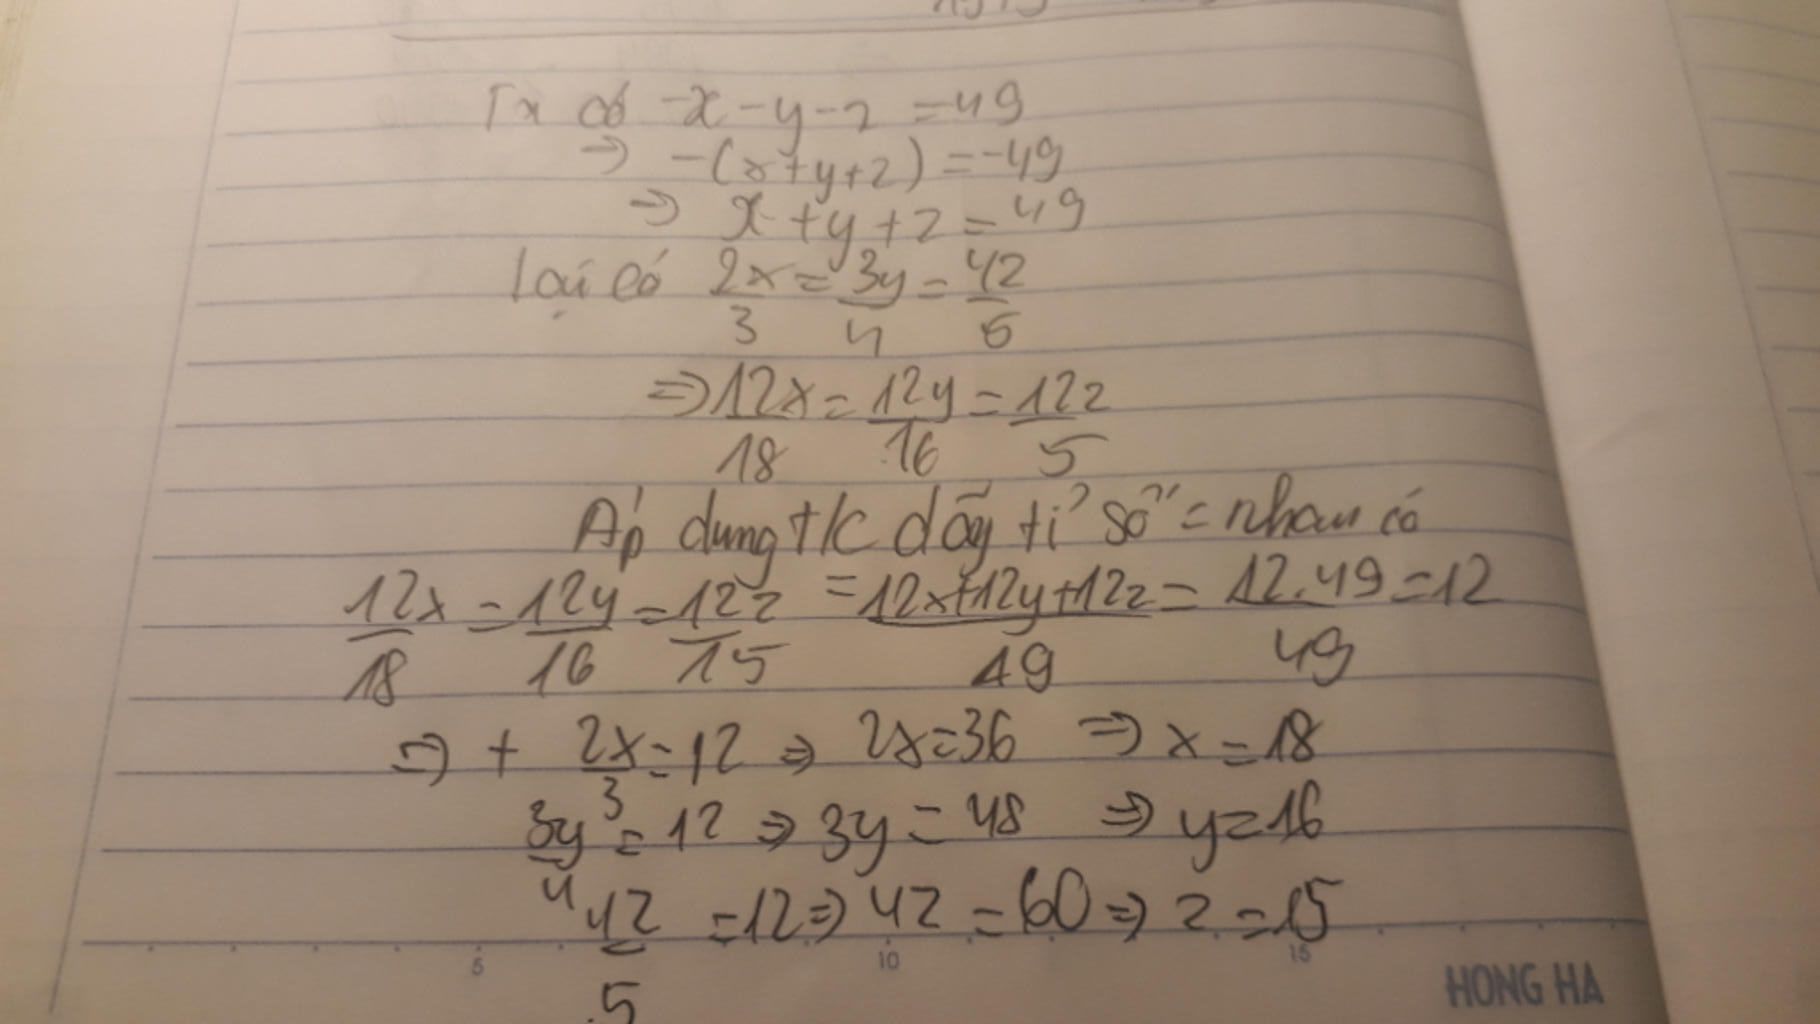 Ta có -x-y-z = 49
⇒ -(x+y+z) = -49
⇒ x+y+z = 49
lại có 2x/3 = 3y/4 = 4z/5
⇒ 12x/18 = 12y/16 = 12z/5
Áp dung t/c dãy tỉ số = nhau có
12x/18 = 12y/16 = 12z/15 = 12x+12y+12z/49 = 12.49/49 = 12
⇒ + 2x/3 = 12 ⇒ 2x=36 ⇒ x=18
3y/4 = 12 ⇒ 3y = 48 ⇒ y=16
4z/5 = 12 ⇒ 4z = 60 ⇒ z = 15
5 10 15
HONG HA